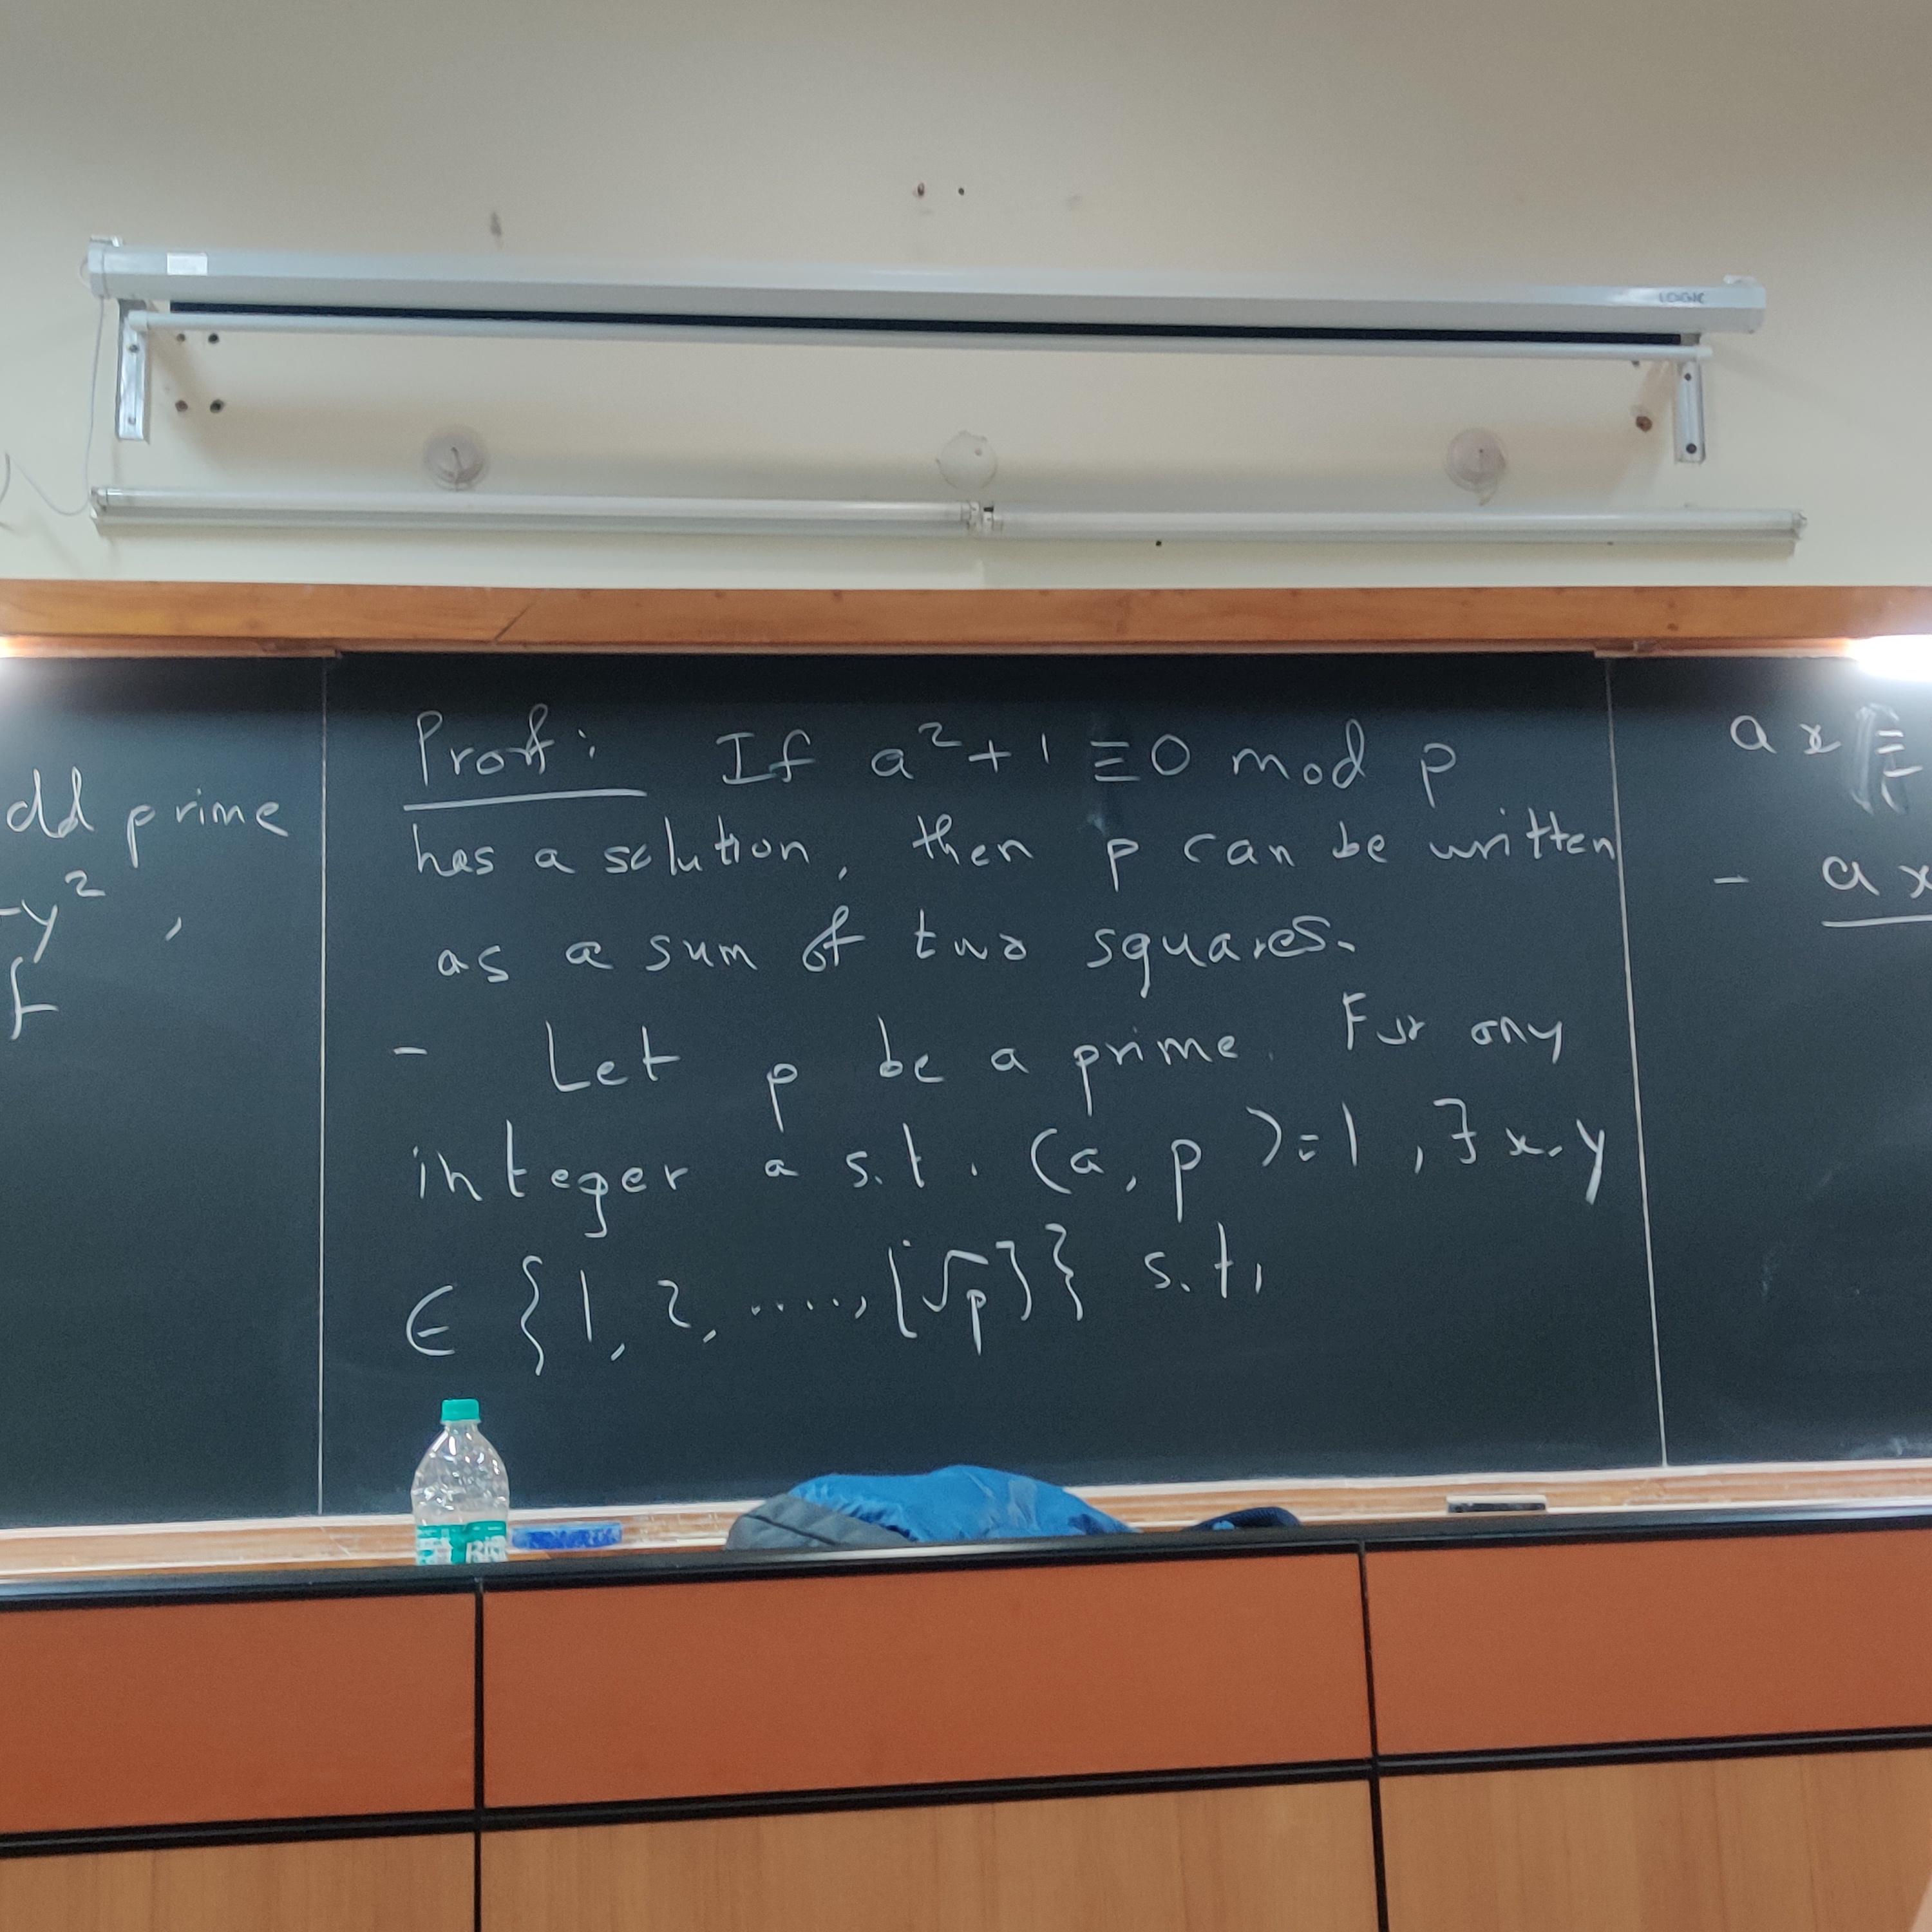 LOGIC
dd prime
-y²,
Proof: If a² + 1 ≡ 0 mod p
has a solution, then p can be written
as a sum of two squares.
- Let p be a prime. For any
integer a s.t. (a, p) = 1, ∃ x, y
∈ {1, 2, ....., [√p]} s.t.
ax ≡
- ax